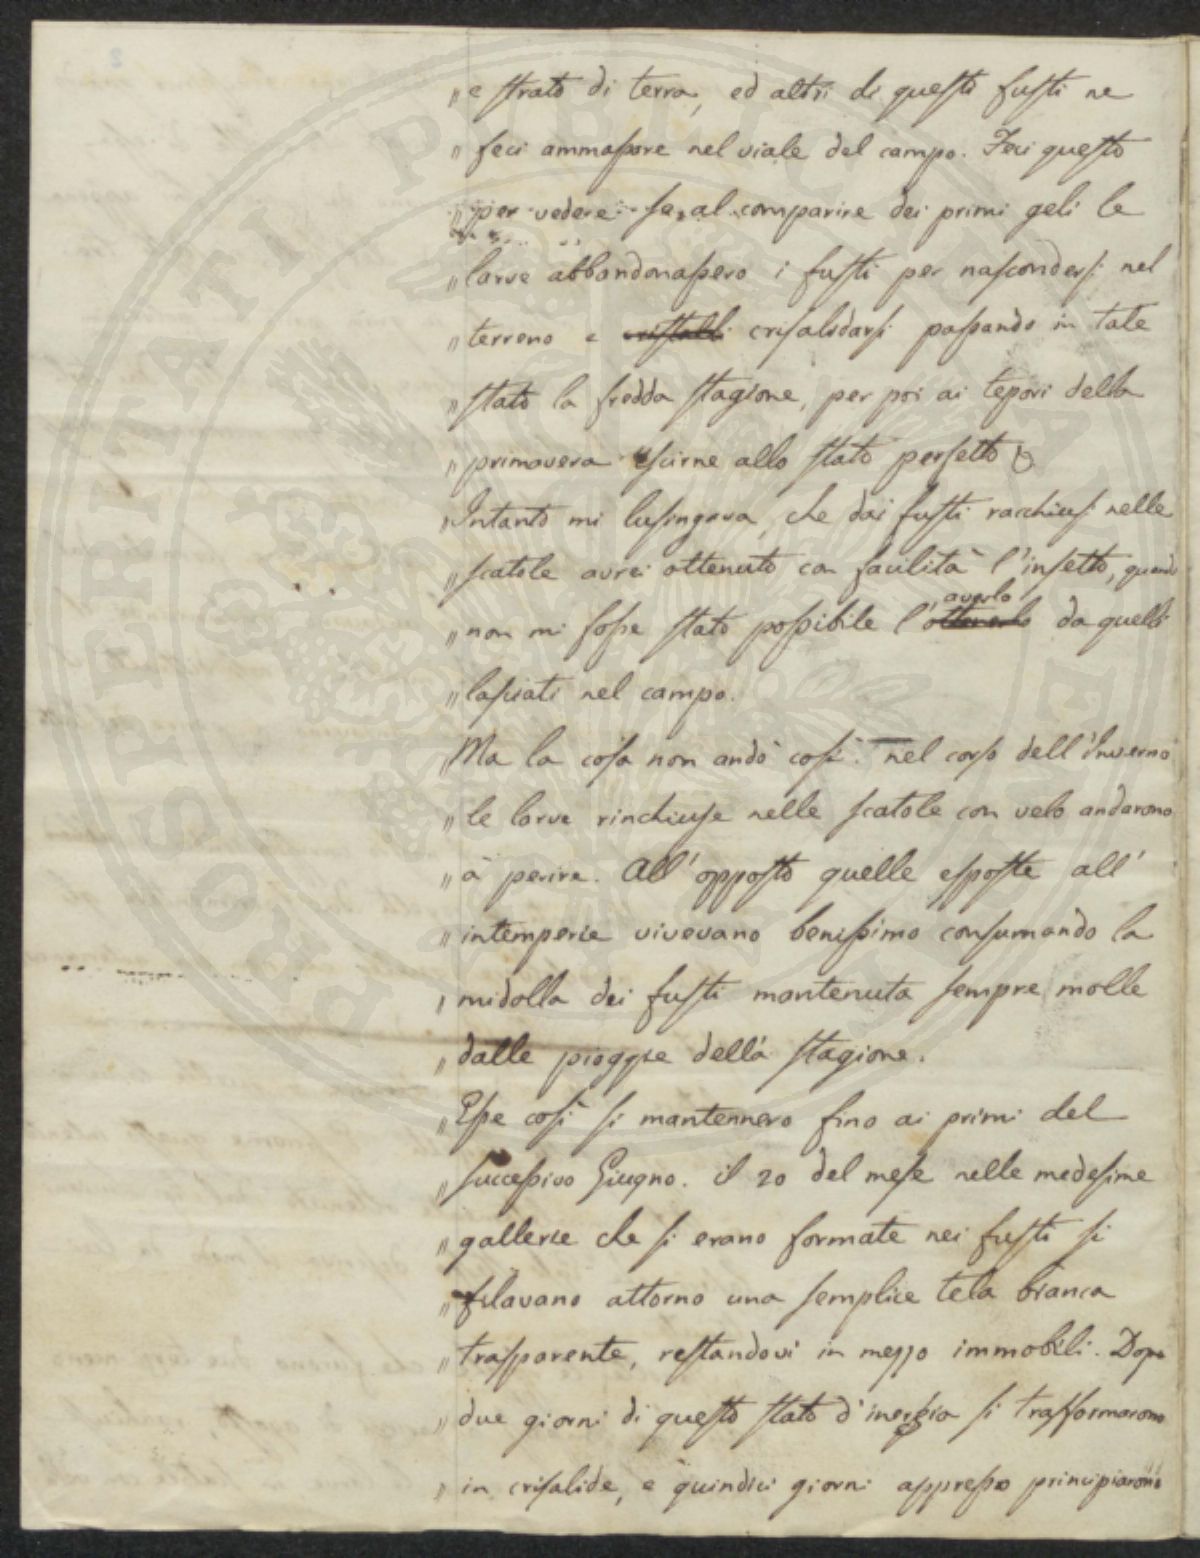 „ e strato di terra, ed altri di questi fusti ne
„ feci ammassare nel viale del campo. Feci questo
„ per vedere se, al comparire dei primi geli le
„ larve abbandonassero i fusti per nascondersi nel
„ terreno e cristalli crisalidarsi passando in tale
„ stato la fredda stagione, per poi ai tepori della
„ primavera escirne allo stato perfetto
„ Intanto mi lusingava, che dai fusti racchiusi nelle
„ scatole avrei ottenuto con facilità l'insetto, quando
„ non mi fosse stato possibile l'ottenerlo averlo da quelli
„ lasciati nel campo.
„ Ma la cosa non andò così. nel corso dell'Inverno
„ le larve rinchiuse nelle scatole con velo andarono
„ à perire. All'opposto quelle esposte all'
„ intemperie vivevano benissimo consumando la
„ midolla dei fusti mantenuta sempre molle
„ dalle pioggie della stagione.
„ Esse così si mantennero fino ai primi del
„ successivo Giugno. il 20 del mese nelle medesime
„ gallerie che si erano formate nei fusti si
„ filavano attorno una semplice tela bianca
„ trasparente, restandovi in mezzo immobili. Dopo
„ due giorni di questo stato d'inerzia si trasformarono
„ in crisalide, e quindici giorni appresso principiarono
PROSPERITATI PUBLICAE